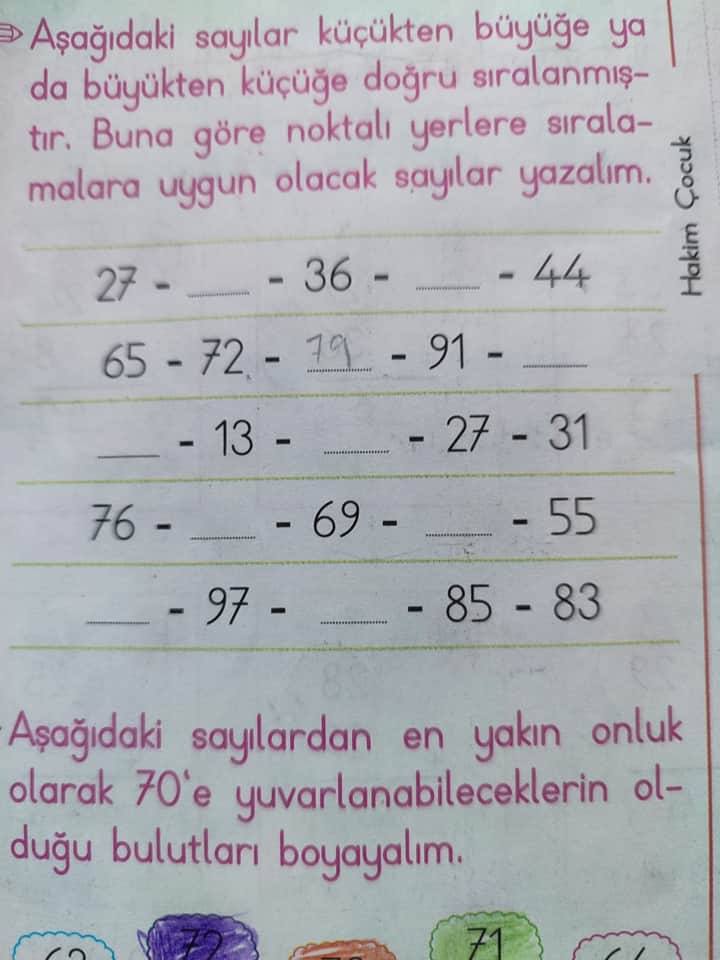 Aşağıdaki sayılar küçükten büyüğe ya
da büyükten küçüğe doğru sıralanmış-
tır. Buna göre noktalı yerlere sırala-
malara uygun olacak sayılar yazalım.
Hakim Çocuk
27 - ........ - 36 - ........ - 44
65 - 72 - 79 - 91 - ........
........ - 13 - ........ - 27 - 31
76 - ........ - 69 - ........ - 55
........ - 97 - ........ - 85 - 83
Aşağıdaki sayılardan en yakın onluk
olarak 70'e yuvarlanabileceklerin ol-
duğu bulutları boyayalım.
72 71